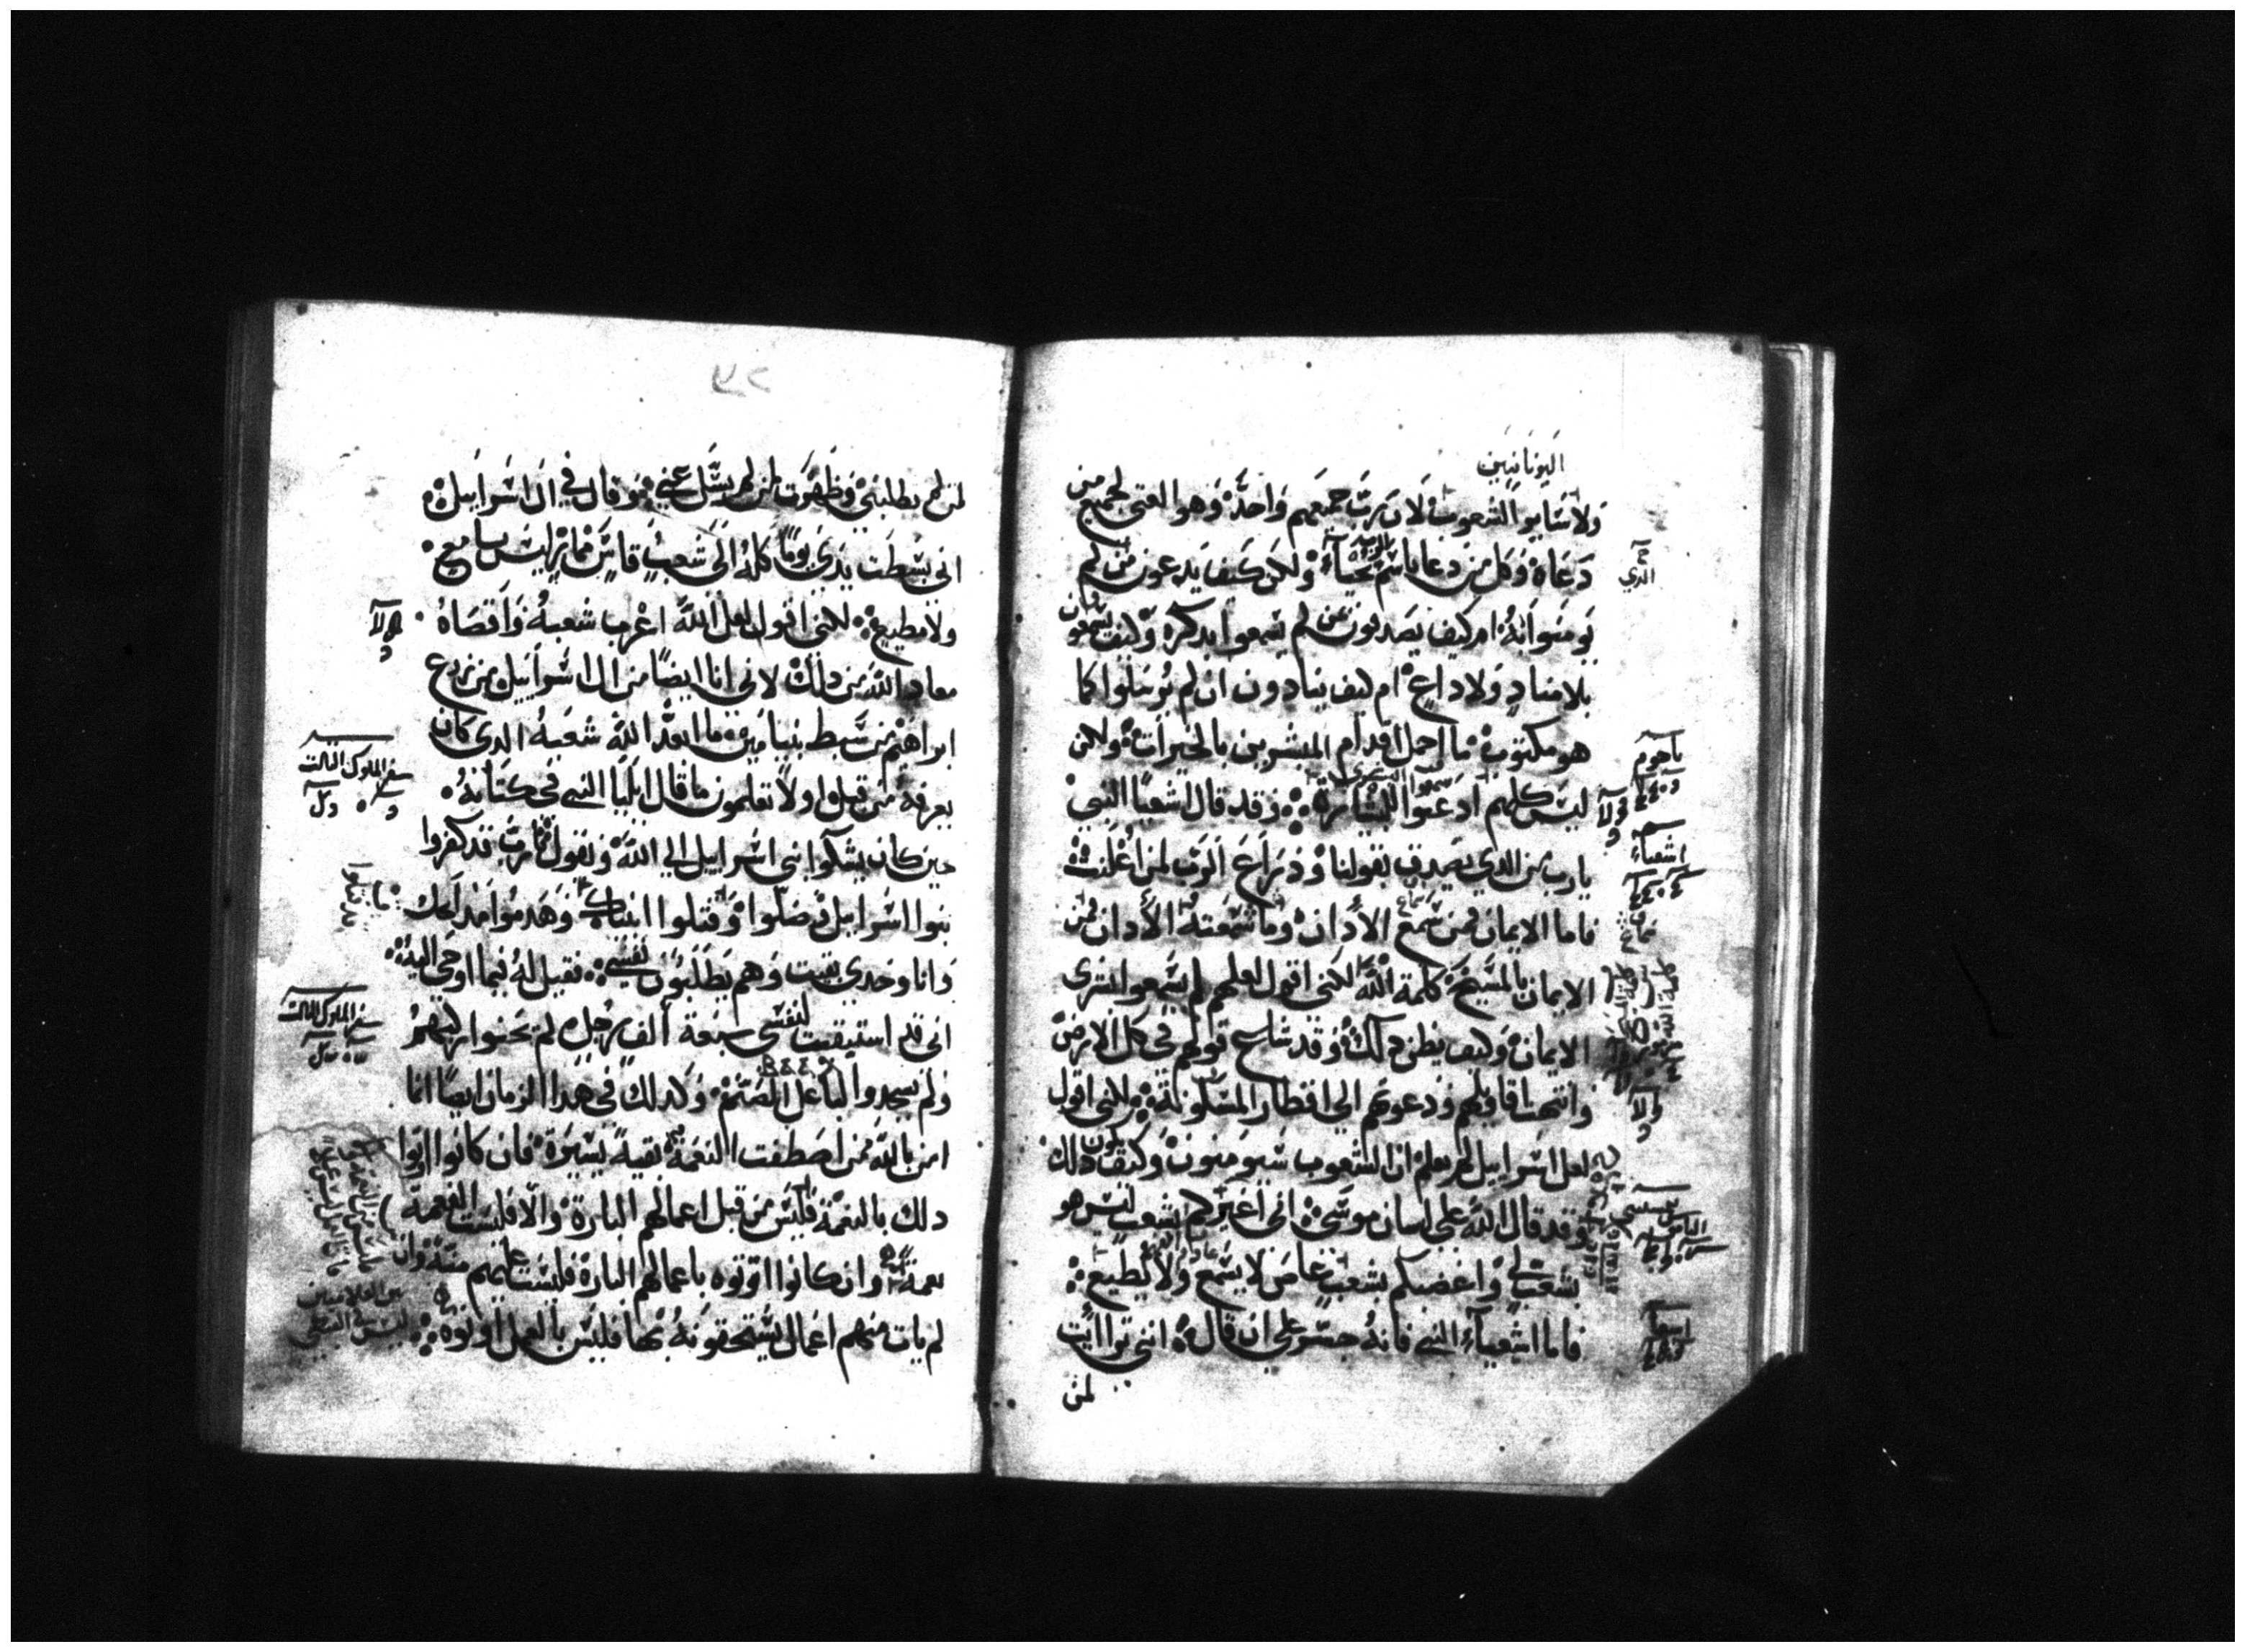 اليونانيين
ولا سايو الشعوب لان رب جميعهم واحد وهو الغني لجميع من
دعاه وكل من دعا باسم الرب يحيا ولكن كيف يدعون من لم
يومنوا به ام كيف يصدقون من لم يسمعوا بذكره وكيف يسمعون
بلا مناد ولا داع ام كيف ينادون ان لم يرسلوا كما
هو مكتوب ما اجمل اقدام المبشرين بالخيرات ولكن
ليس كلهم ادعنوا للبشارة وقد قال اشعيا النبي
يارب من الذي يصدق بقولنا وذراع الرب لمن اعلنت
فاما الايمان فمن سمع الاذان وما سمعته الاذان فمن
الايمان بالمسيح كلمة الله لكني اقول لعلهم لم يسمعوا بشرى
الايمان وكيف يظن ذلك وقد شاع قولهم في كل الارض
وانتهت اقاويلهم ودعوتهم الي اقطار المسكونة لكني اقول
لعل اسراييل لم يعلم ان الشعوب سيومنون وكيف يكون ذلك
وقد قال الله على لسان موسى اني اغيركم بشعب ليس هو
بشعب لي واغضبكم بشعب عاص لا يسمع ولا يطيع
فاما اشعياء النبي فانه جسر على ان قال انني تراايت
لمن
الذي
ناحوم
اشعياء
ولا
اشعيا
لمن لم يطلبني وظهرت لمن لم يسل عني وقال في ال اسراييل
اني بسطت يدي يوما كله الى شعب قاس مماري ليس سامع
ولا مطيع لكني اقول لعل الله اغرب شعبه واقصاه
معاذ الله من ذلك لاني انا ايضا من ال اسراييل من زرع
ابراهيم من سبط بنيامين ما ابعد الله شعبه الذي كان
يعرفه من قبل اولا تعلمون ما قال ايليا النبي في كتابه
حين كان يشكوا بني اسراييل الي الله ويقول يارب قد كفروا
بنوا اسراييل وضلوا وقتلوا انبياك وهدموا مذابحك
وانا وحدي بقيت وهم يطلبون نفسي فقيل له فيما اوحى اليه
اني قد استبقيت لنفسي سبعة ألف رجل لم يحنوا ركبهم
ولم يسجدوا لباعل الصنم وكذلك في هذا الزمان ايضا انا
امن بالله ممن اصطفت النعمة بقية يسيرة فان كانوا اتوا
ذلك بالنعمة فليس من قبل اعمالهم البارة والا فليست النعمة
نعمة وان كانوا اوتوه باعمالهم البارة فليست عليهم منة وان
لم يات منهم اعمال يستحقونه بها فليس بالعمل اوتوه
ولا
سفر الملوك الثالث
سفر الملوك الثالث